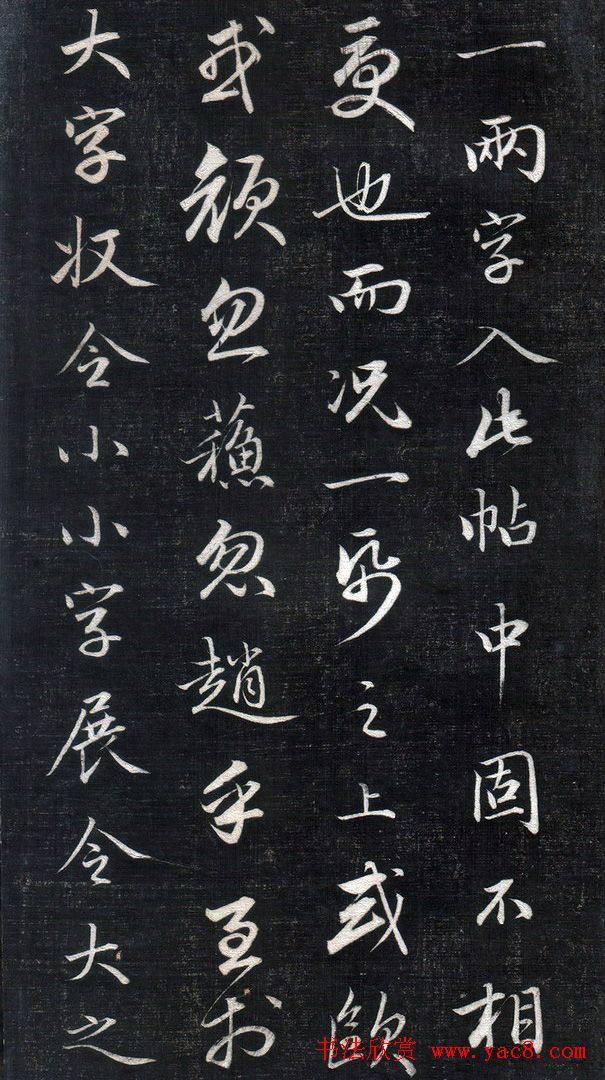 一兩字入此帖中固不相
也而况一帋之上或歐
或顔忽蘓忽趙乎至扵
大字收令小小字展令大之
书法欣赏 www.yac8.com